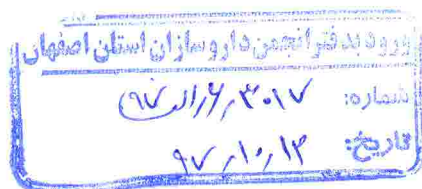 ورود بدفتر انجمن داروسازان استان اصفهان
شماره: ۳۰۱۷/۶/الف/۹۷
تاریخ: ۹۷/۱۰/۱۳